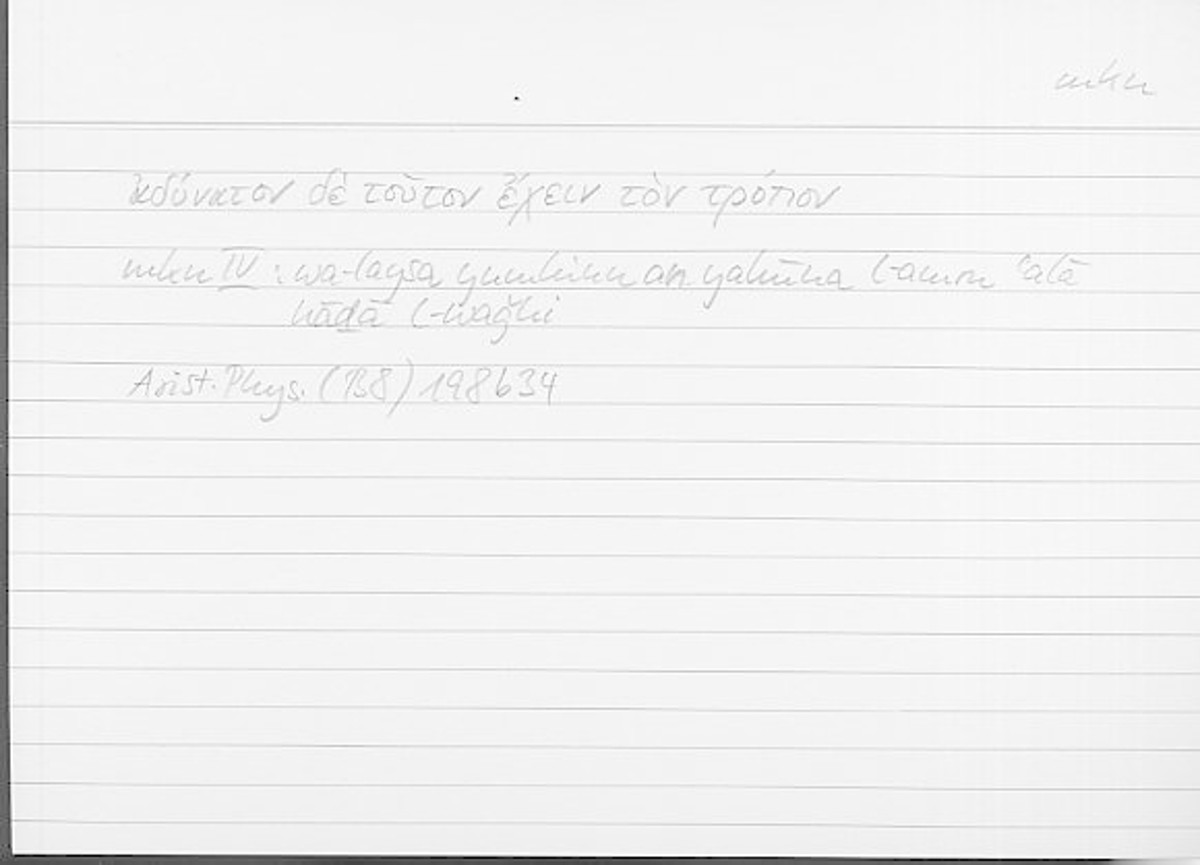 mkn
ἀδύνατον δὲ τοῦτον ἔχειν τὸν τρόπον
mkn IV : wa-laysa yumkinu an yakūna l-amru ʿalā
hāḏā l-waǧhi
Arist. Phys. (B8) 198b34